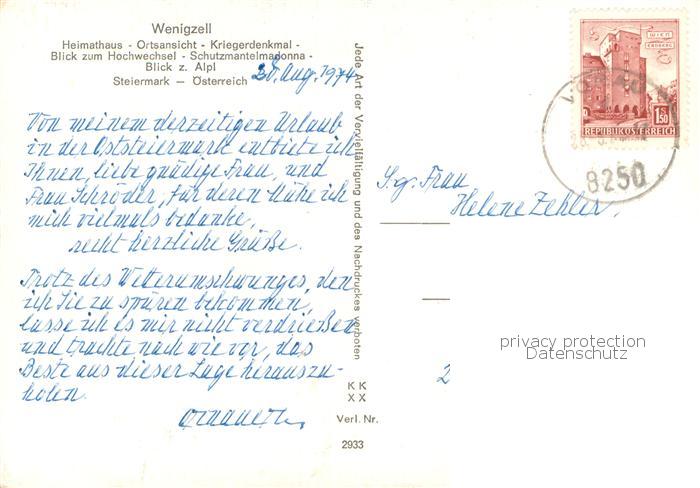 Wenigzell
Heimathaus - Ortsansicht - Kriegerdenkmal -
Blick zum Hochwechsel - Schutzmantelmadonna -
Blick z. Alpl
Steiermark — Österreich
Aug. 1974
Von meinem derzeitigen Urlaub
in der Oststeiermark entbiete ich
Ihnen, liebe gnädige Frau, und
Frau Schröder, für deren Mühe ich
mich vielmals bedanke,
recht herzliche Grüße.
Trotz des Wetterumschwunges, den
ich hie zu spüren bekommen,
lasse ich es mir nicht verdrießen
und trachte nach wie vor, das
Beste aus dieser Lage herauszu-
holen.
Jede Art der Vervielfältigung und des Nachdruckes verboten
KK
XX
Verl. Nr.
2933
WIEN
ERDBERG
1S
1.50
REPUBLIK ÖSTERREICH
8250
S.g. Frau
Helene Zehler,
2
privacy protection
Datenschutz